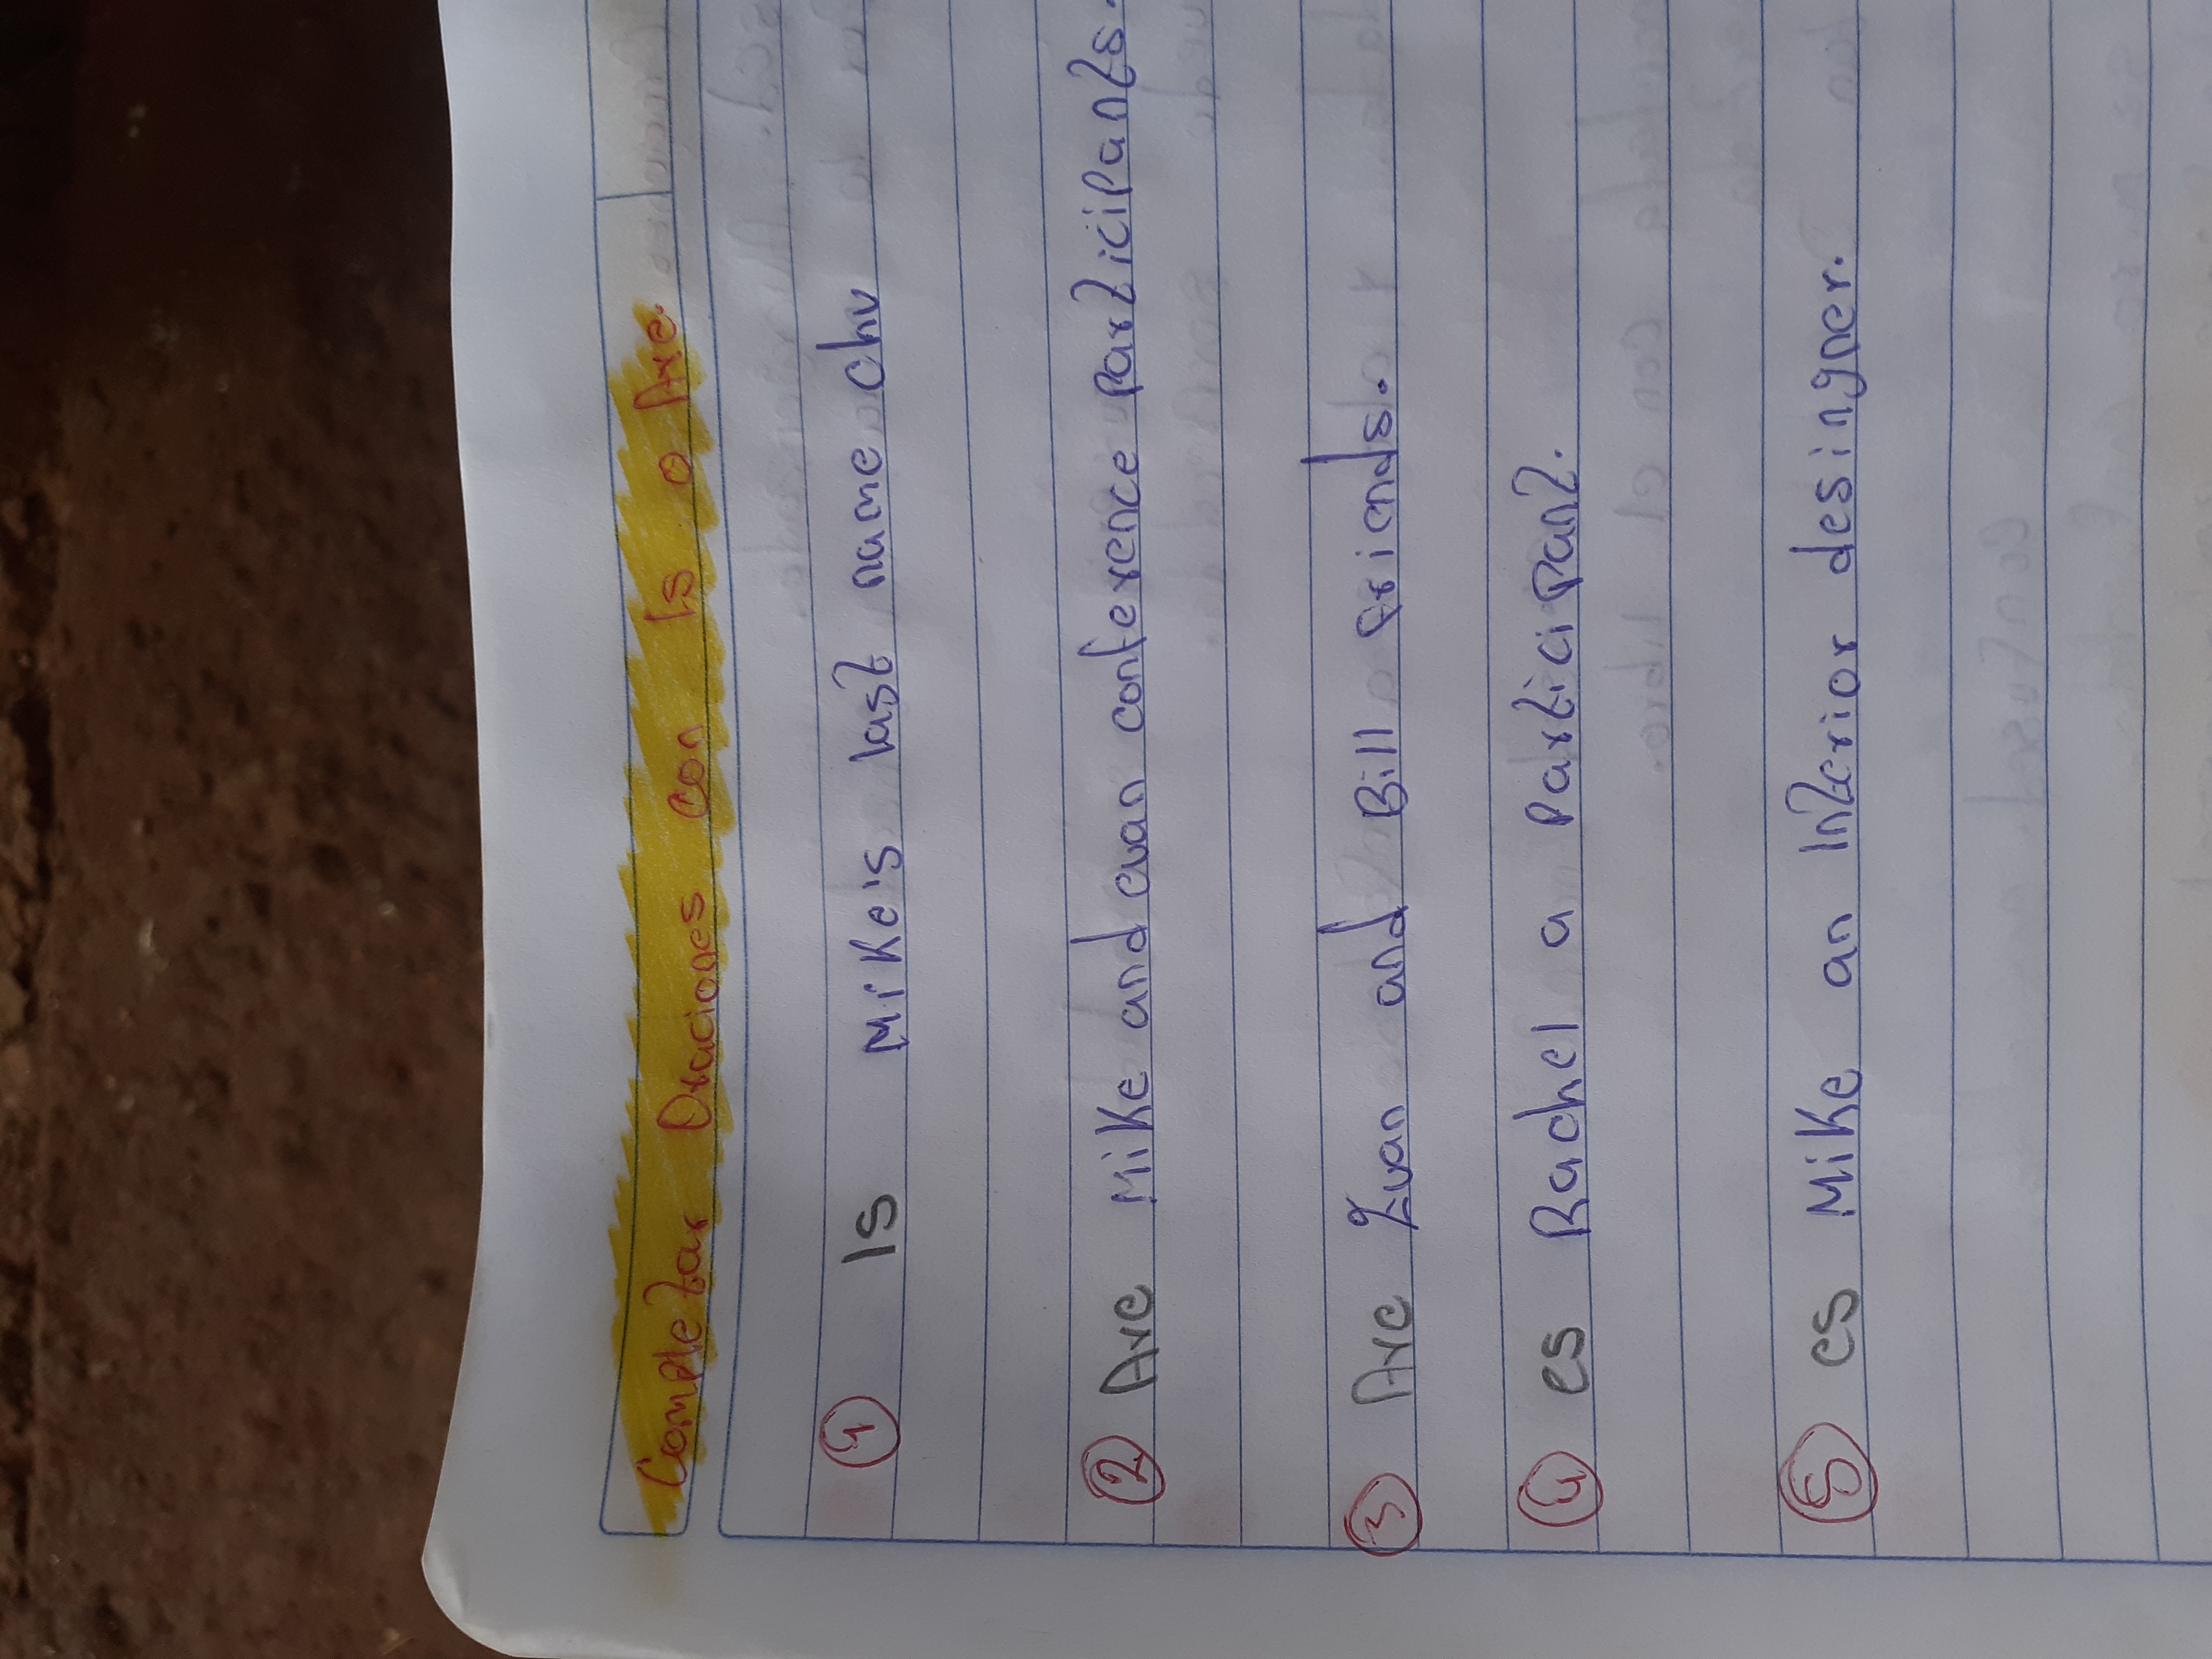 Completar Oraciones con Is o Are.
1 Is Mike's last name chu
2 Are Mike and evan conference participants.
3 Are Evan and Bill friends.
4 es Rachel a participant.
5 es Mike an Interior desingner.